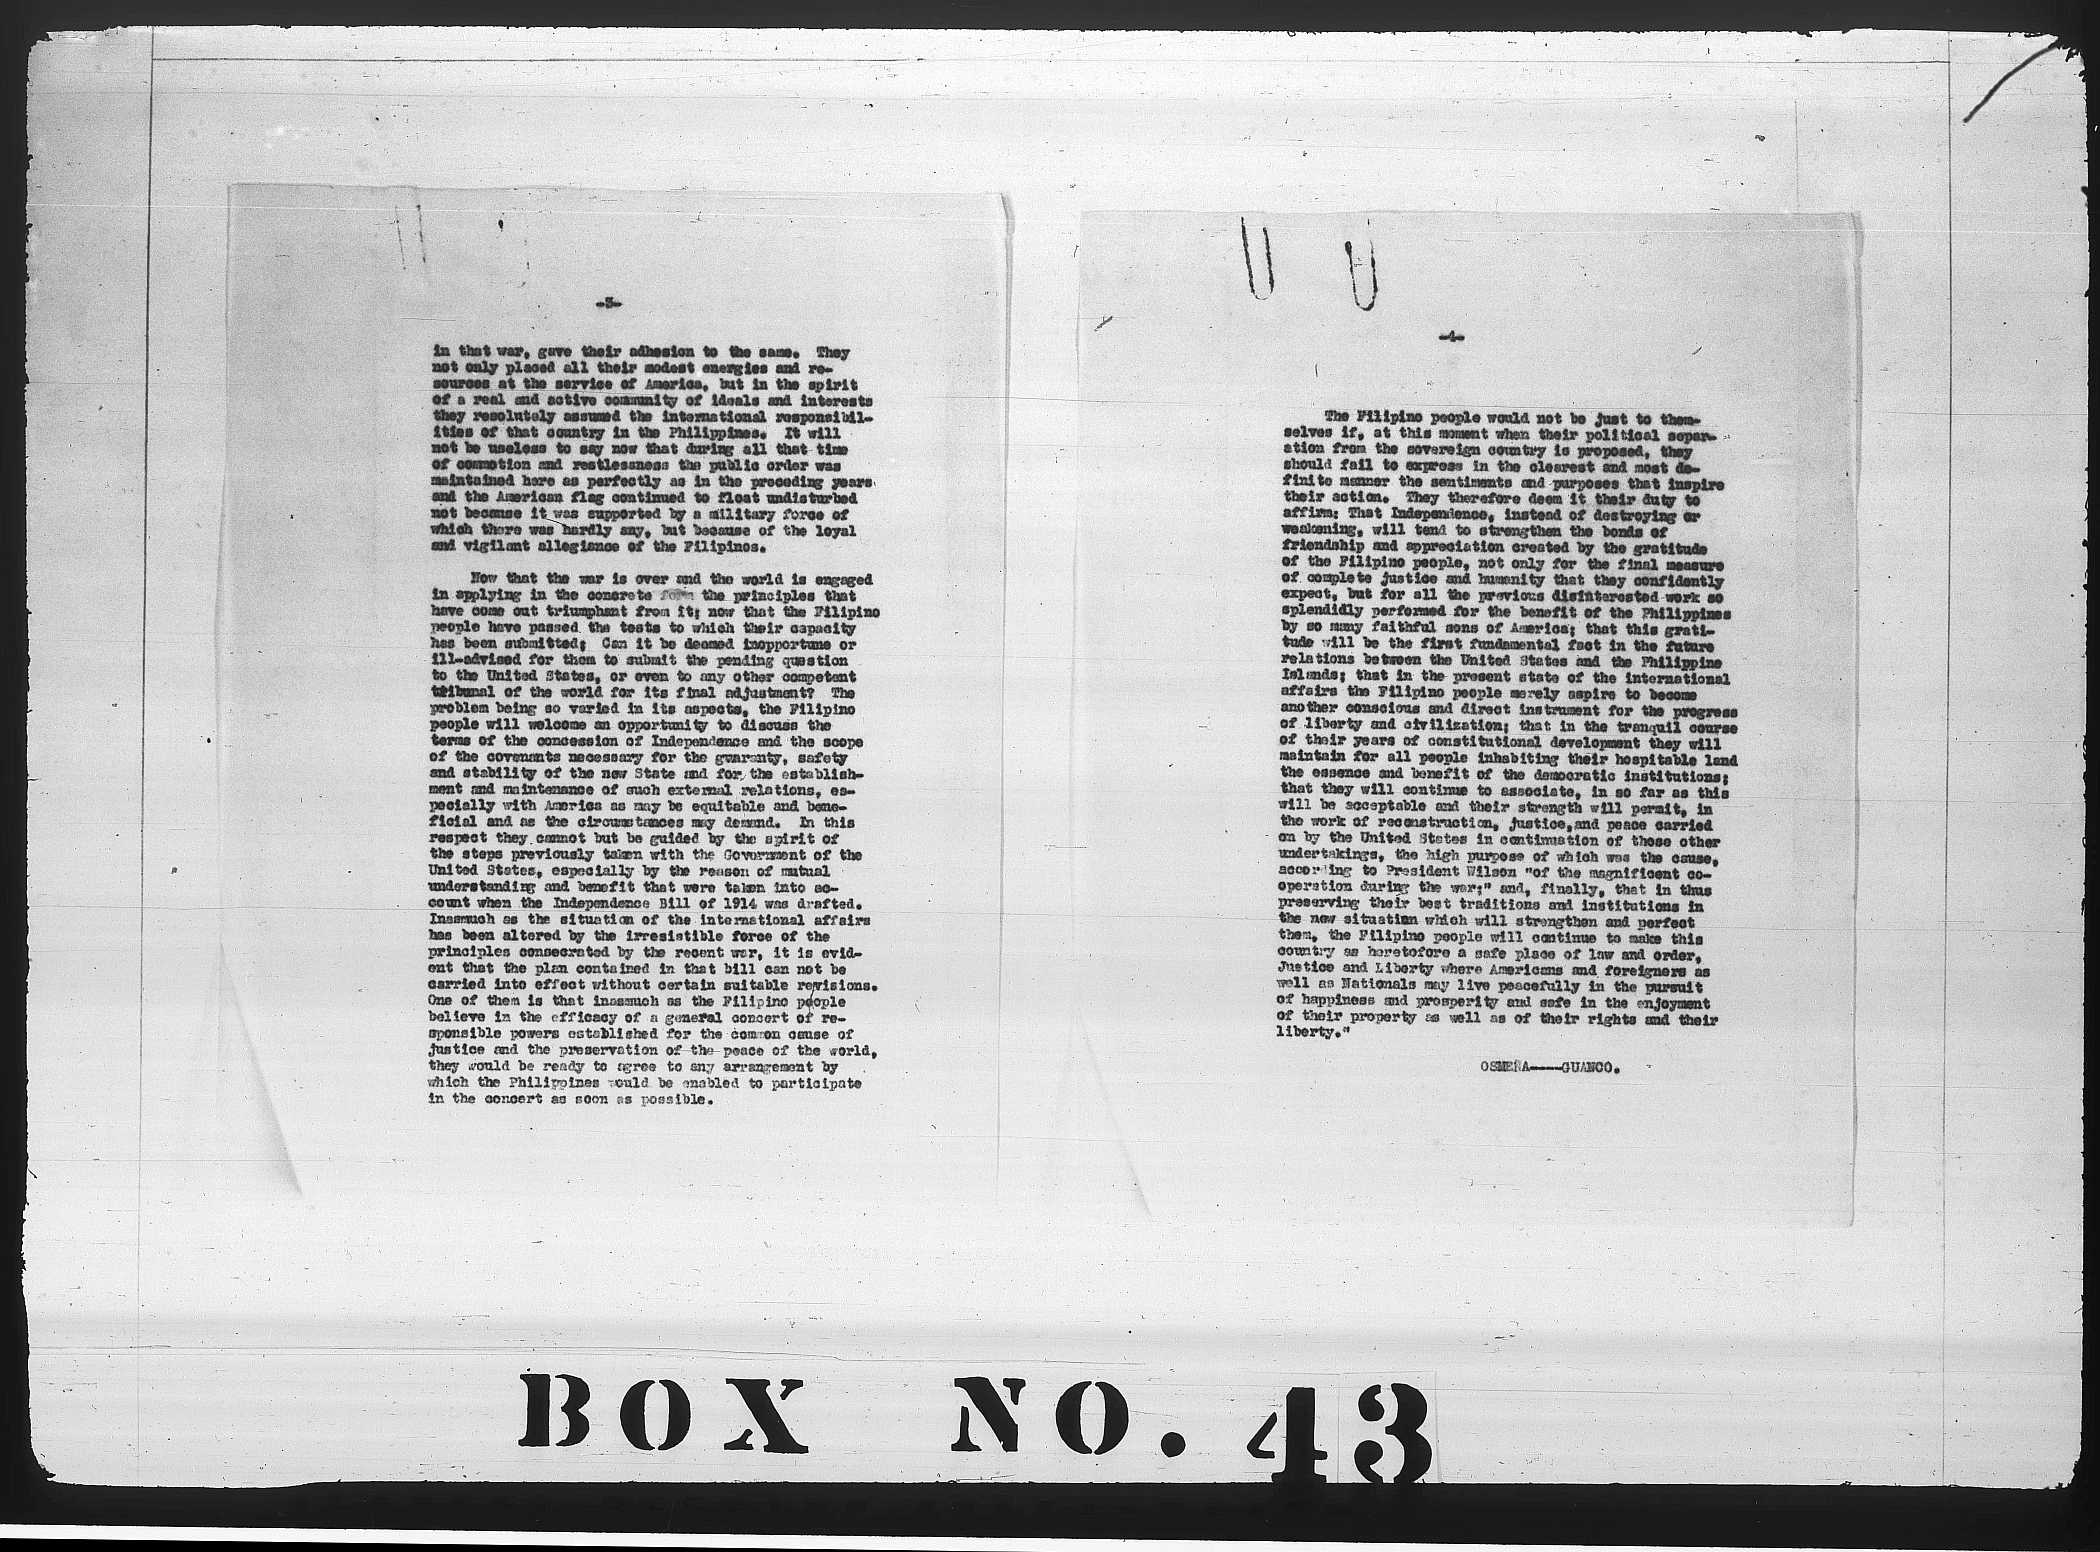 -3-
in that war, gave their adhesion to the same. They
not only placed all their modest energies and re-
sources at the service of America, but in the spirit
of a real and active community of ideals and interests
they resolutely assumed the international responsibil-
ities of that country in the Philippines. It will
not be useless to say now that during all that time
of commotion and restlessness the public order was
maintained here as perfectly as in the preceding years
and the American flag continued to float undisturbed
not because it was supported by a military force of
which there was hardly any, but because of the loyal
and vigilant allegiance of the Filipinos.
Now that the war is over and the world is engaged
in applying in the concrete form the principles that
have come out triumphant from it; now that the Filipino
people have passed the tests to which their capacity
has been submitted; Can it be deemed inopportune or
ill-advised for them to submit the pending question
to the United States, or even to any other competent
tribunal of the world for its final adjustment? The
problem being so varied in its aspects, the Filipino
people will welcome an opportunity to discuss the
terms of the concession of Independence and the scope
of the covenants necessary for the guaranty, safety
and stability of the new State and for the establish-
ment and maintenance of such external relations, es-
pecially with America as may be equitable and bene-
ficial and as the circumstances may demand. In this
respect they cannot but be guided by the spirit of
the steps previously taken with the Government of the
United States, especially by the reason of mutual
understanding and benefit that were taken into ac-
count when the Independence Bill of 1914 was drafted.
Inasmuch as the situation of the international affairs
has been altered by the irresistible force of the
principles consecrated by the recent war, it is evid-
ent that the plan contained in that bill can not be
carried into effect without certain suitable revisions.
One of them is that inasmuch as the Filipino people
believe in the efficacy of a general concert of re-
sponsible powers established for the common cause of
justice and the preservation of the peace of the world,
they would be ready to agree to any arrangement by
which the Philippines would be enabled to participate
in the concert as soon as possible.
-4-
The Filipino people would not be just to them-
selves if, at this moment when their political separ-
ation from the sovereign country is proposed, they
should fail to express in the clearest and most de-
finite manner the sentiments and purposes that inspire
their action. They therefore deem it their duty to
affirm: That Independence, instead of destroying or
weakening, will tend to strengthen the bonds of
friendship and appreciation created by the gratitude
of the Filipino people, not only for the final measure
of complete justice and humanity that they confidently
expect, but for all the previous disinterested work so
splendidly performed for the benefit of the Philippines
by so many faithful sons of America; that this grati-
tude will be the first fundamental fact in the future
relations between the United States and the Philippine
Islands; that in the present state of the international
affairs the Filipino people merely aspire to become
another conscious and direct instrument for the progress
of liberty and civilization; that in the tranquil course
of their years of constitutional development they will
maintain for all people inhabiting their hospitable land
the essence and benefit of the democratic institutions;
that they will continue to associate, in so far as this
will be acceptable and their strength will permit, in
the work of reconstruction, justice,and peace carried
on by the United States in continuation of those other
undertakings, the high purpose of which was the cause,
according to President Wilson "of the magnificent co-
operation during the war;" and, finally, that in thus
preserving their best traditions and institutions in
the new situation which will strengthen and perfect
them, the Filipino people will continue to make this
country as heretofore a safe place of law and order,
Justice and Liberty where Americans and foreigners as
well as Nationals may live peacefully in the pursuit
of happiness and prosperity and safe in the enjoyment
of their property as well as of their rights and their
liberty."
OSMEÑA----GUANCO.
BOX NO. 43